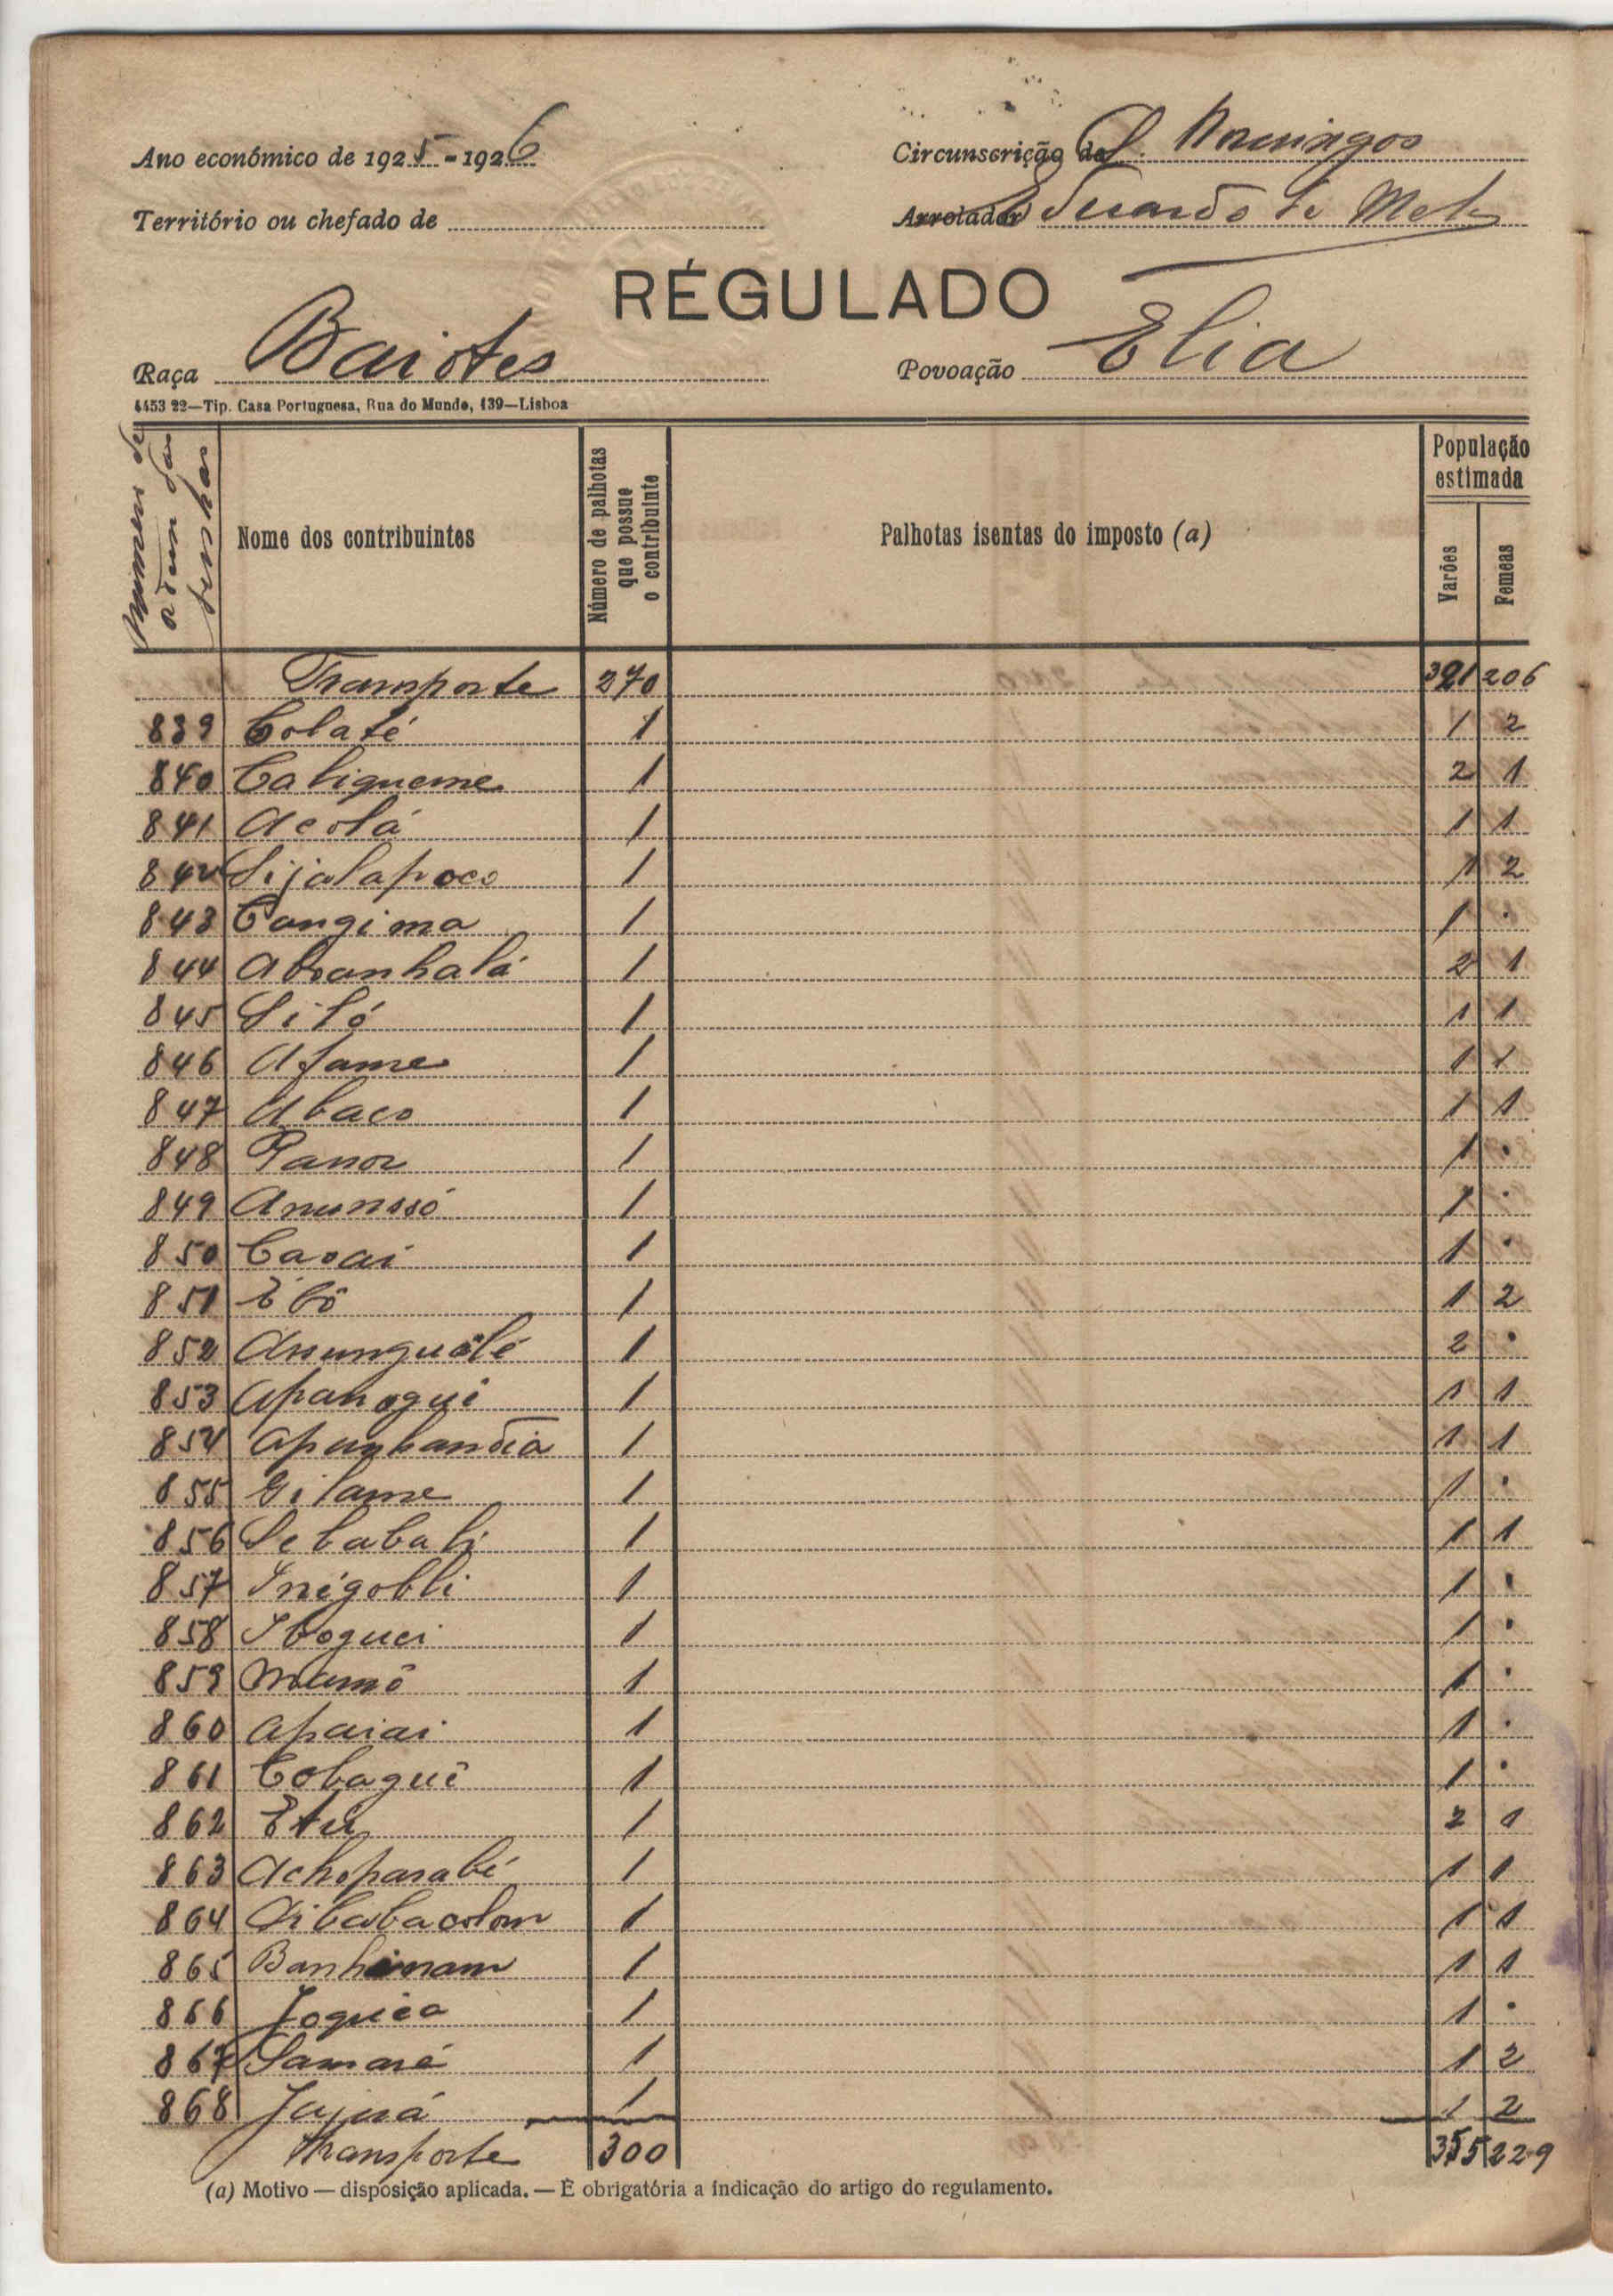 Ano económico de 1925-1926
Circunscrição de S. Domingos
Território ou chefado de
Arrolador Eduardo de Melo
RÉGULADO
Raça Baiotes
Povoação Elia
4453 22—Tip. Casa Portuguesa, Rua do Mundo, 139—Lisboa
Numero de ordem das senhas
Nome dos contribuintes
Número de palhotas que possue o contribuinte
Palhotas isentas do imposto (a)
População estimada
Varões
Femeas
Transporte 270 321 206
839 Colaté 1 1 2
840 Caliqueme 1 2 1
841 Acolá 1 1 1
842 Sijalapoco 1 1 2
843 Cangima 1 1 .
844 Abranhalá 1 2 1
845 Siló 1 1 1
846 Afame 1 1 1
847 Abaco 1 1 1
848 Panor 1 1 .
849 Anunssó 1 1 .
850 Casai 1 1 .
851 Ébô 1 1 2
852 Anungualé 1 2 .
853 Apanogui 1 1 1
854 Apanhandia 1 1 1
855 Gilame 1 1 .
856 Sebabali 1 1 1
857 Inégobli 1 1 .
858 Iboguei 1 1 .
859 Mamô 1 1 .
860 Apaiai 1 1 .
861 Cobaguê 1 1 .
862 Etú 1 2 1
863 Achoparabé 1 1 1
864 Dibabacolom 1 1 1
865 Banhinam 1 1 1
866 Joquica 1 1 .
867 Samaré 1 1 2
868 Jajurá 1 1 2
Transporte 300 355 229
(a) Motivo — disposição aplicada. — E obrigatória a indicação do artigo do regulamento.